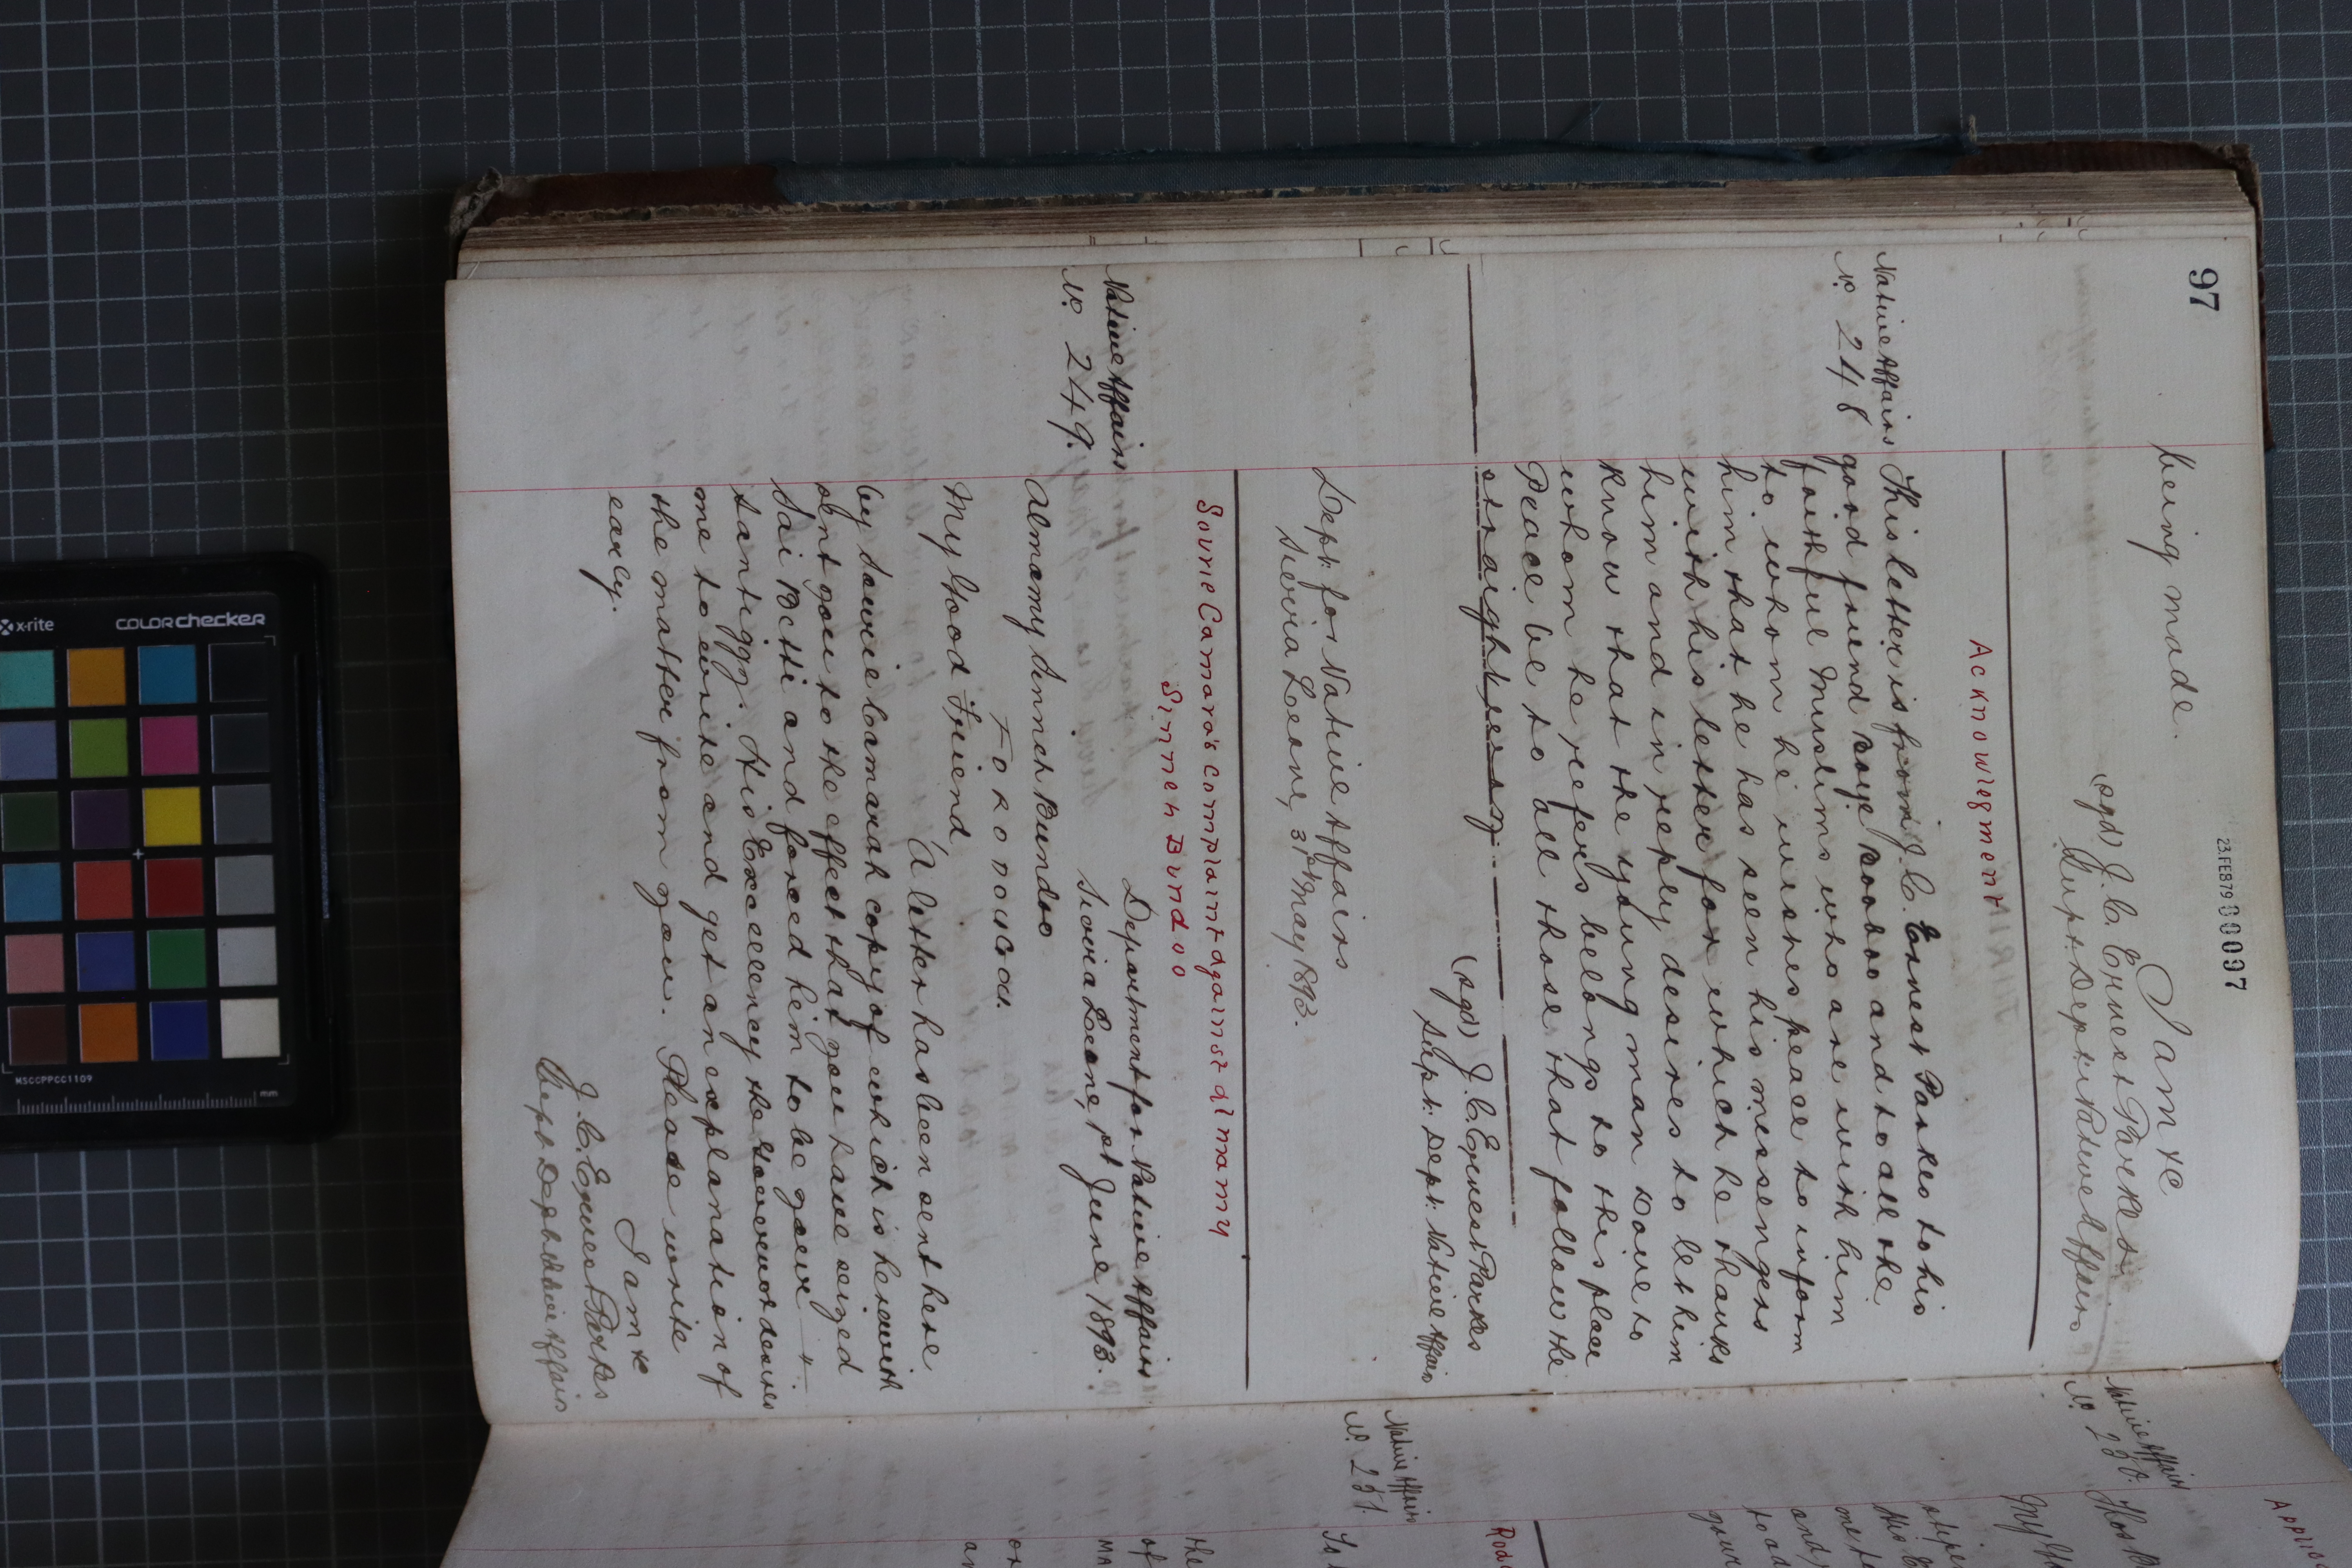 97
23.FEB79 00097
being made.
I am &c
(sgd) J. C. Ernest Parkes
Supt. Dept. Native Affairs
Acknowlegment
Native Affairs
No. 248
This letter is from J. C. Ernest Parkes to his
good friend and to all the
faithful Muslims who are with him
to whom he wishes peace to inform
him that he has seen his messengers
with his letter for which he thanks
him and in reply desires to let him
know that the young man Dove to
whom he refers belongs to this place
Peace be to all those that follow the
straight
(sgd) J. C. Ernest Parkes
Supt. Dept. Native Affairs
Dept. for Native Affairs
Sierra Leone, 31st May 1893.
Sourie Camara's complaint against Almamy
Sinneh Bundoo
Native Affairs
No. 249.
Department for Native Affairs
Sierra Leone, 1st June 1893.
Almamy Sinneh Bundoo
Forodugu.
My Good Friend,
A letter has been sent here
by Sourie Camarah copy of which is herewith
sent you to the effect that you have seized
Sai Betti and forced him to be your
santiggy. His Excellency the Governor desires
me to write and get an explanation of
the matter from you. Please write
early.
I am &c
J. C. Ernest Parkes
Supt Dept Native Affairs
Native Affairs
No. 250.
My
Native Affairs
No. 251.
the
of
x-rite
COLORchecker
MSCCPPCC1109
mm